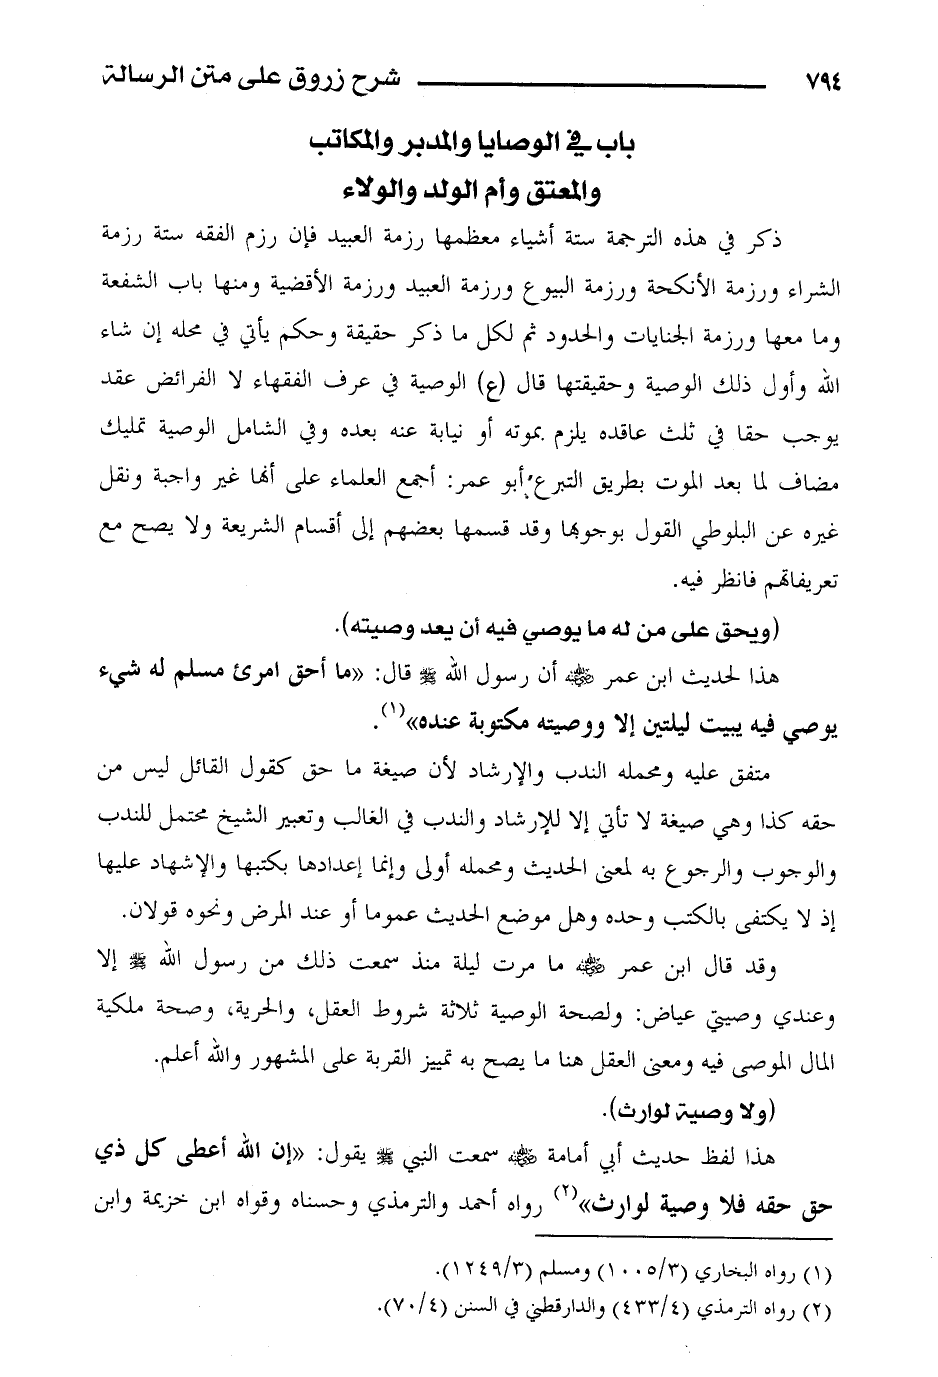 ٧٩٤ شرح زروق على متن الرسالة
باب في الوصايا والمدبر والمكاتب
والمعتق وأم الولد والولاء
ذكر في هذه الترجمة ستة أشياء معظمها رزمة العبيد فإن رزم الفقه ستة رزمة
الشراء ورزمة الأنكحة ورزمة البيوع ورزمة العبيد ورزمة الأقضية ومنها باب الشفعة
وما معها ورزمة الجنايات والحدود ثم لكل ما ذكر حقيقة وحكم يأتي في محله إن شاء
الله وأول ذلك الوصية وحقيقتها قال (ع) الوصية في عرف الفقهاء لا الفرائض عقد
يوجب حقا في ثلث عاقده يلزم بموته أو نيابة عنه بعده وفي الشامل الوصية تمليك
مضاف لما بعد الموت بطريق التبرع أبو عمر: أجمع العلماء على أنها غير واجبة ونقل
غيره عن البلوطي القول بوجوبها وقد قسمها بعضهم إلى أقسام الشريعة ولا يصح مع
تعريفاتهم فانظر فيه.
(ويحق على من له ما يوصي فيه أن يعد وصيته).
هذا لحديث ابن عمر ﵁ أن رسول الله ﷺ قال: «ما أحق امرئ مسلم له شيء
يوصي فيه يبيت ليلتين إلا ووصيته مكتوبة عنده»(١).
متفق عليه ومحمله الندب والإرشاد لأن صيغة ما حق كقول القائل ليس من
حقه كذا وهي صيغة لا تأتي إلا للإرشاد والندب في الغالب وتعبير الشيخ محتمل للندب
والوجوب والرجوع به لمعنى الحديث ومحمله أولى وإنما إعدادها بكتبها والإشهاد عليها
إذ لا يكتفى بالكتب وحده وهل موضع الحديث عموما أو عند المرض ونحوه قولان.
وقد قال ابن عمر ﵁ ما مرت ليلة منذ سمعت ذلك من رسول الله ﷺ إلا
وعندي وصيتي عياض: ولصحة الوصية ثلاثة شروط العقل، والحرية، وصحة ملكية
المال الموصى فيه ومعنى العقل هنا ما يصح به تمييز القربة على المشهور والله أعلم.
(ولا وصية لوارث).
هذا لفظ حديث أبي أمامة ﵁ سمعت النبي ﷺ يقول: «إن الله أعطى كل ذي
حق حقه فلا وصية لوارث»(٢) رواه أحمد والترمذي وحسناه وقواه ابن خزيمة وابن
(١) رواه البخاري (١٠٠٥/٣) ومسلم (١٢٤٩/٣).
(٢) رواه الترمذي (٤٣٣/٤) والدارقطني في السنن (٧٠/٤).